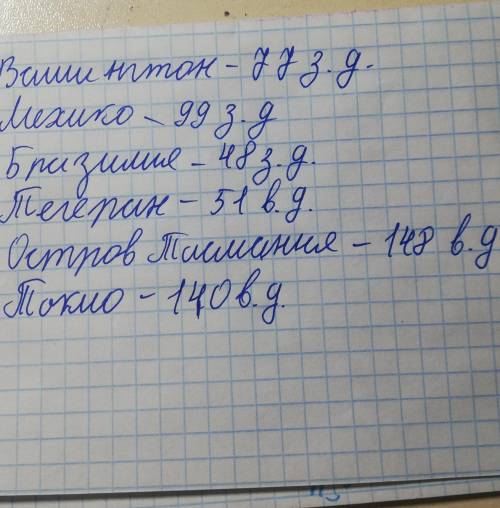 Вашингтон - 77 з.д.
Мехико - 99 з.д
Бразилия - 48 з.д.
Тегеран - 51 в.д.
Остров Тасмания - 148 в.д
Токио - 140 в.д.